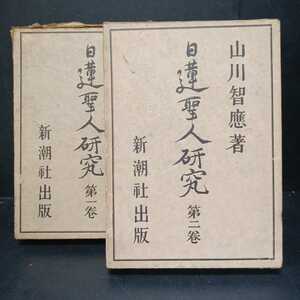 山川智應著
日蓮聖人研究 第二卷
新潮社出版
日蓮聖人研究 第一卷
新潮社出版